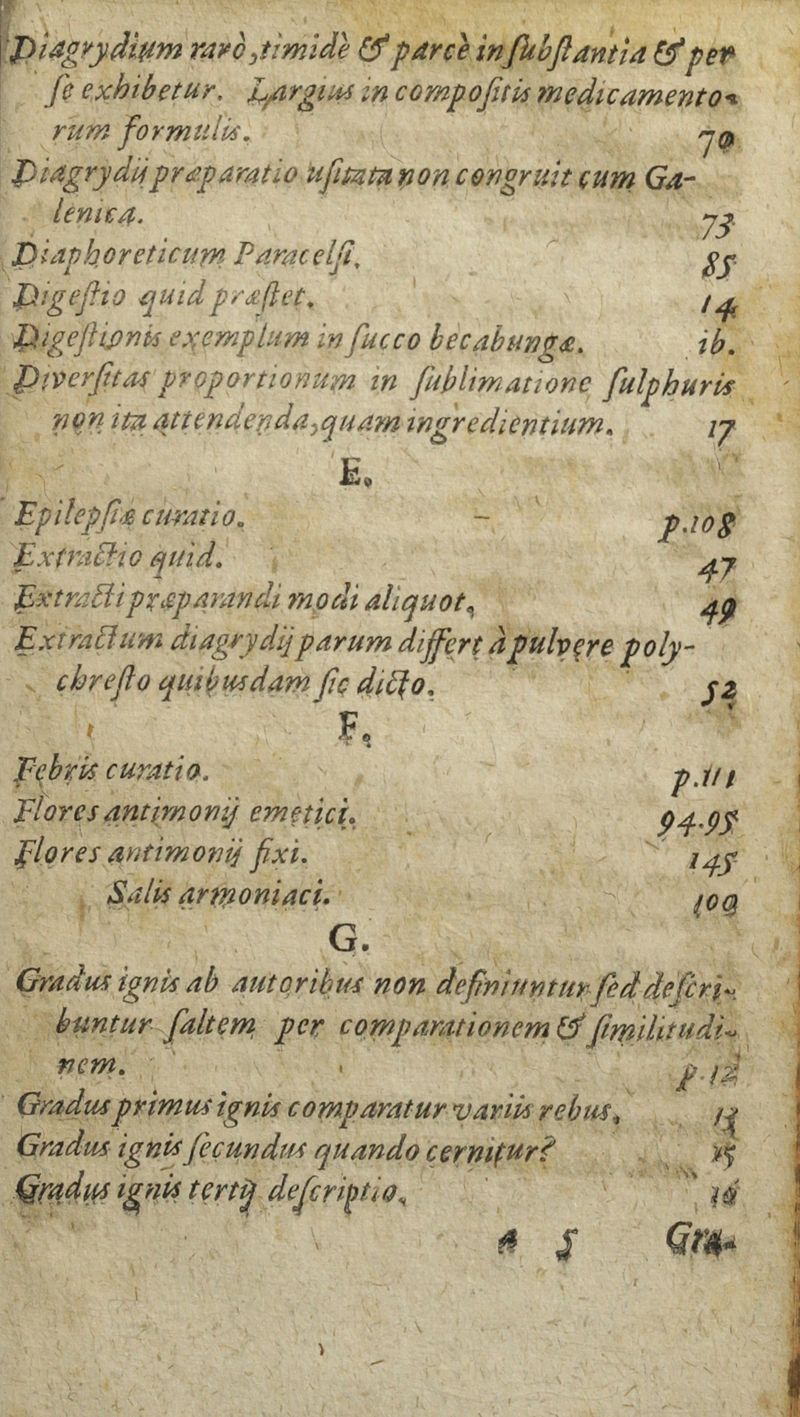 Diagrydium rarò, timidè & parcè in ſubſtantia & per
ſe exhibetur. Largius in compoſitis medicamento-
rum formulis. 70
Diagrydij præparatio uſitata non congruit cum Ga-
lenica. 73
Diaphoreticum Paracelſi. 85
Digeſtio quid præſtet. 14
Digeſtionis exemplum in ſucco becabungæ. ib.
Diverſitas proportionum in ſublimatione ſulphuris
non ita attendenda, quam ingredientium. 17
E.
Epilepſiæ curatio. p.108
Extractio quid. 47
Extracti præparandi modi aliquot. 49
Extractum diagrydij parum differt à pulvere poly-
chreſto quibusdam ſic dicto. 52
F.
Febris curatio. p.111
Flores antimonij emetici. 94.95
Flores antimonij fixi. 145
Salis armoniaci. 109
G.
Gradus ignis ab autoribus non definiuntur ſed deſcri-
buntur ſaltem per comparationem & ſimilitudi-
nem. p.12
Gradus primus ignis comparatur variis rebus.
Gradus ignis ſecundus quando cernitur? 15
Gradus ignis tertij deſcriptio. 16
a 5 Gra-